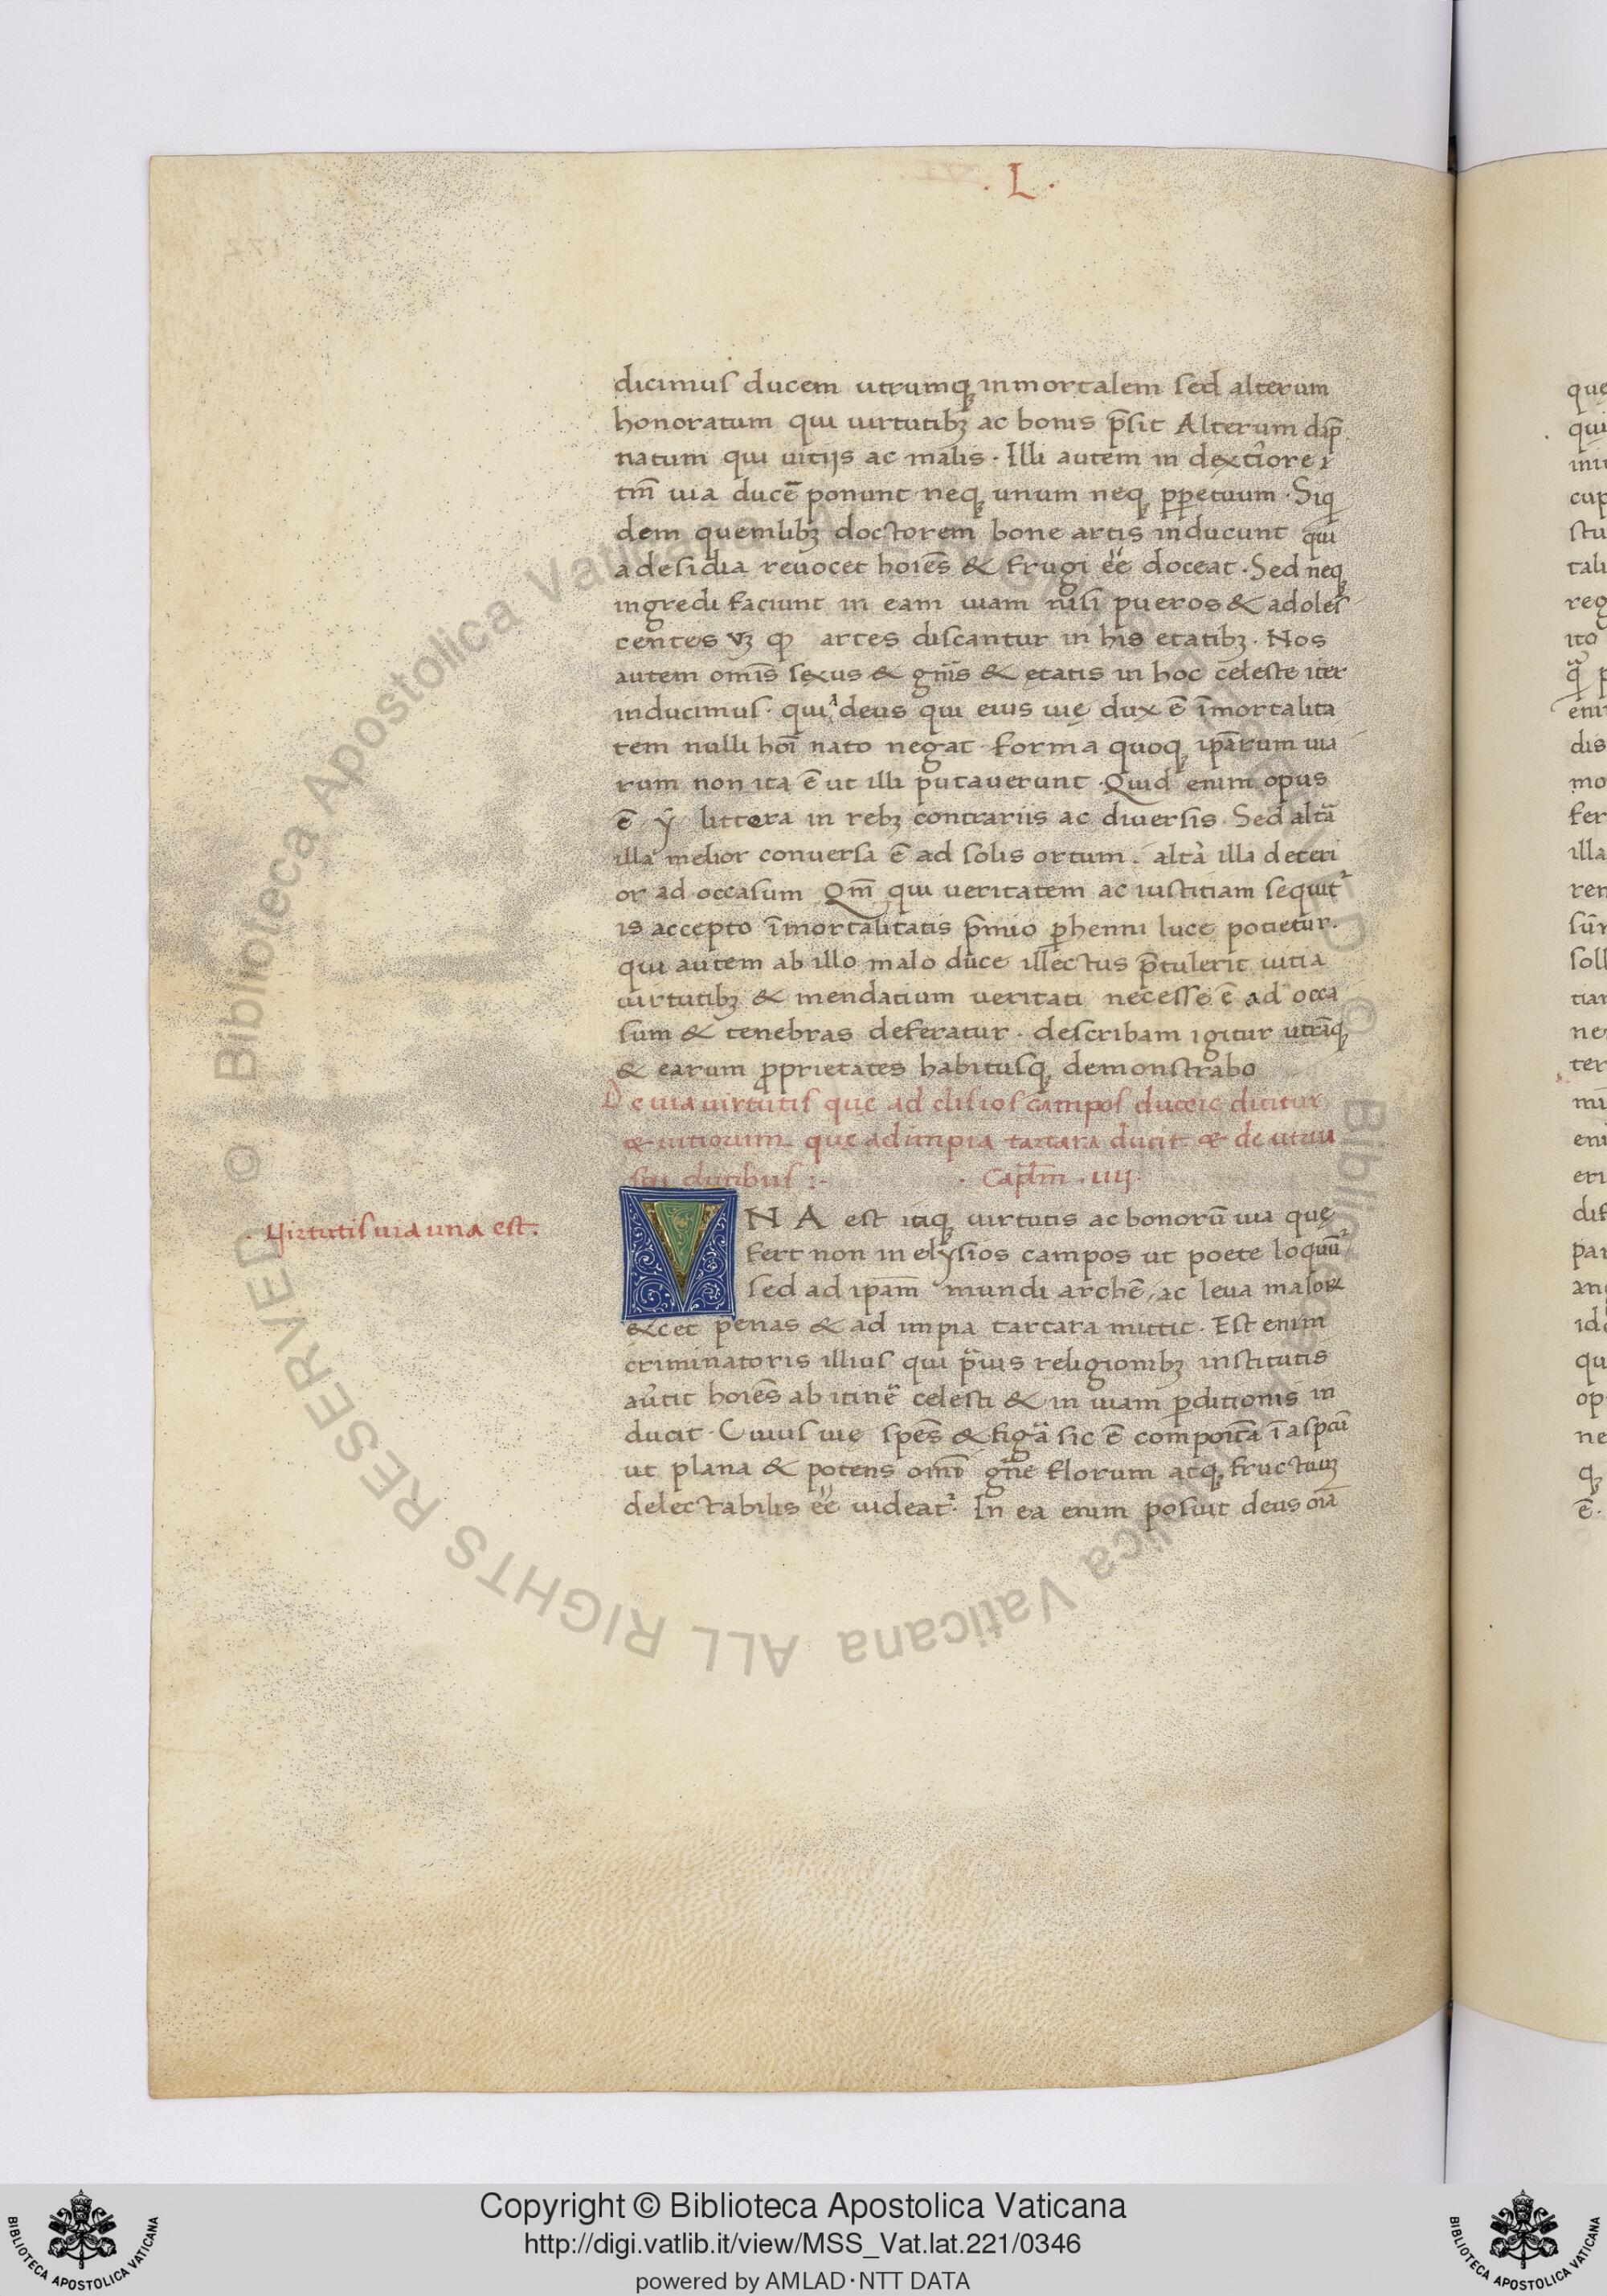 . L .
dicimus ducem utrumq; inmortalem sed alterum
honoratum qui uirtutib; ac bonis p̄sit Alterum dāp
natum qui uitijs ac malis . Illi autem in dexteriore
tm̄ uia ducē ponunt neq; unum neq; ꝑpetuum . Siq
dem quemlib; doctorem bone artis inducunt qui
a desidia reuocet hoīes & frugi eē doceat . Sed neq;
ingredi faciunt in eam uiam nisi pueros & adoles
centes artes discantur in his etatib; . Nos
autem omīs sexus & gn̄is & ętatis in hoc celeste iter
inducimus . quia deus qui eius uię dux ē īmortalita
tem nulli hoī nato negat . forma quoq; ipārum uia
rum non ita ē ut illi putauerunt . Quid enim opus
ē ẏ littera in reb; contrariis ac diuersis . Sed altā
illa melior conuersa ē ad solis ortum . altā illa deteri
or ad occasum Qm̄ qui ueritatem ac iustitiam sequit᷑
is accepto īmortalitatis p̄mio ꝑhenni luce potietur .
qui autem ab illo malo duce illectus p̄tulerit uitia
uirtutib; & mendatium ueritati necesse ē ad occa
sum & tenebras deferatur . describam igitur utrāq;
& earum ꝓprietates habitusq; demonstrabo
De uia uirtutis que ad elisios campos ducere dicitur
& uitiorum que ad impia tartara ducit & de utriu
sq; ducibus :- . Capl̄m . iiij .
. Virtutis uia una est .
VNA est itaq; uirtutis ac bonorū uia quę
fert non in elẏsios campos ut poete loquū᷑
sed ad ipām mundi archē, ac leua maloꝝ
penas & ad impia tartara mittit . Est enim
criminatoris illius qui p̄uis religionib; institutis
aūtit hoīes ab itinē celesti & in uiam ꝑditionis in
ducit . Cuius uię spēs & figā sic ē compoītā ī aspcū
ut plana & potens omī gn̄e florum atq; fructuū
delectabilis eē uideat᷑ . In ea enim posuit deus oīa
Copyright © Biblioteca Apostolica Vaticana
http://digi.vatlib.it/view/MSS_Vat.lat.221/0346
powered by AMLAD·NTT DATA
BIBLIOTECA APOSTOLICA VATICANA
BIBLIOTECA APOSTOLICA VATICANA
© Biblioteca Apostolica Vaticana ALL RIGHTS RESERVED
© Biblioteca Apostolica Vaticana ALL RIGHTS RESERVED